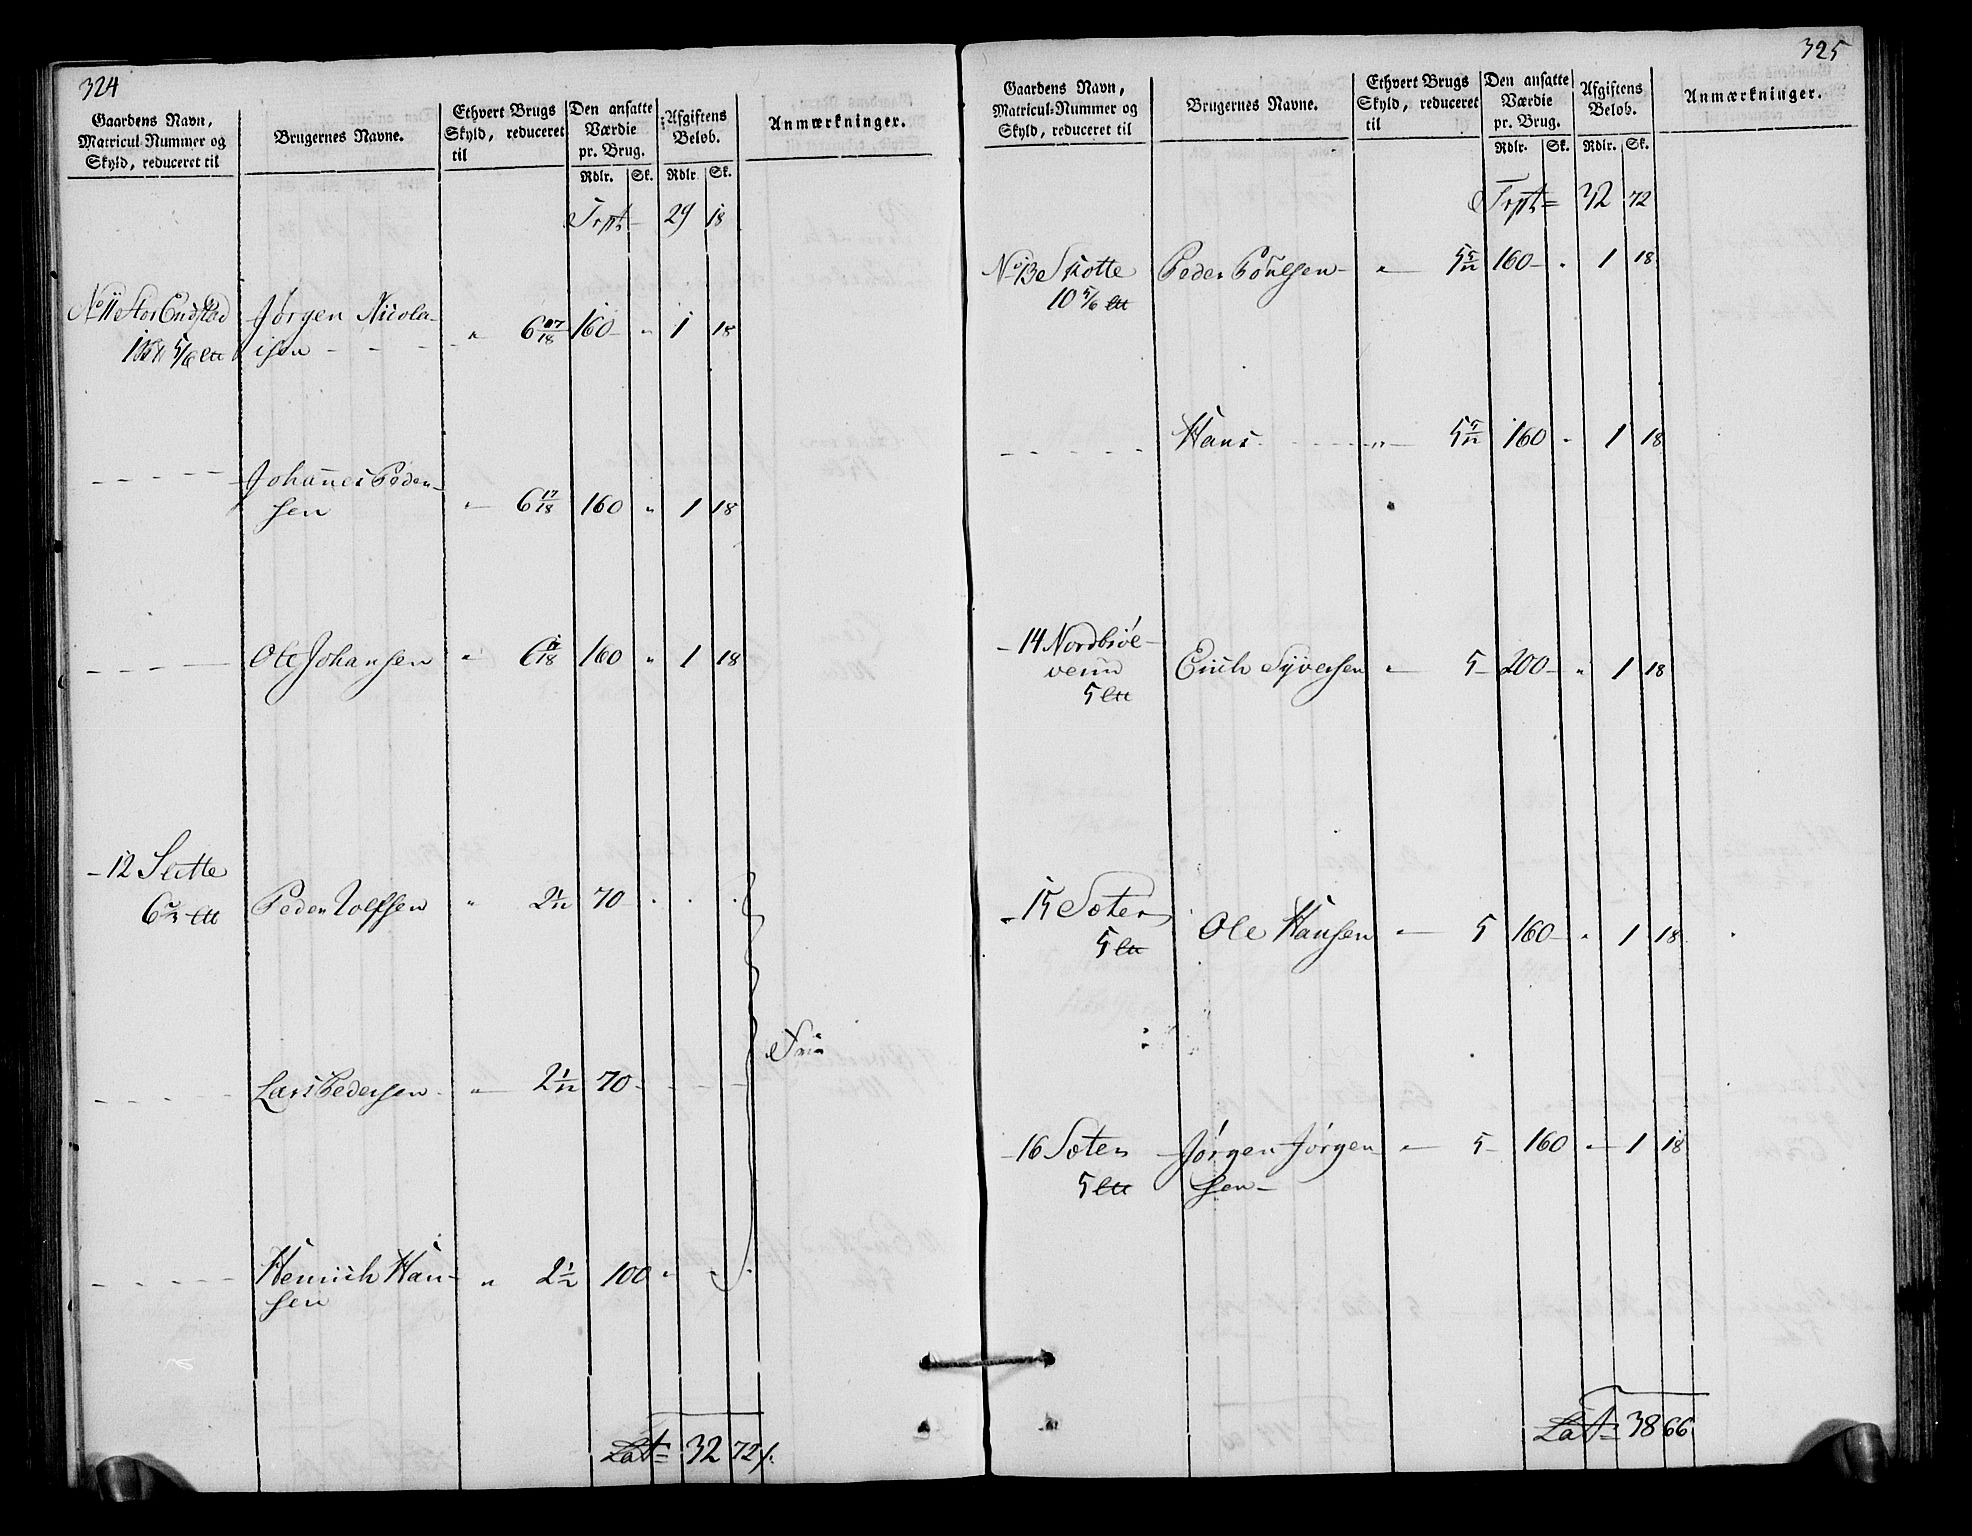 324
Gaardens Navn,
Matricul-Nummer og
Skyld, reduceret til
Brugernes Navne.
Ethvert Brugs
Skyld, reduceret
til
Den ansatte
Værdie
pr. Brug.
Rdlr. Sk.
Afgiftens
Beløb.
Rdlr Sk.
Anmærkninger.
Trpt 29 18
No 11
Jørgen Nicola- " 6 17/18 160 " 1 18
isen
Johannes Peder- " 6 17/18 160 " 1 18
sen
Ole Johansen " 6 17/18 160 " 1 18
12 Slette
Peder Rolfsen " 2 1/12 70
Lars Pedersen " 2 1/12 70
Frie
Henrich Han- " 2 1/12 100
sen
Lat 32 72
325
Gaardens Navn,
Matricul-Nummer og
Skyld, reduceret til
Brugernes Navne.
Ethvert Brugs
Skyld, reduceret
til
Den ansatte
Værdie
pr. Brug.
Rdlr. Sk.
Afgiftens
Beløb.
Rdlr. Sk.
Anmærkninger.
Trpt 32 72
No 13 Skotte Peder Poulsen " 5 5/12 160 " 1 18
10 5/6
Hans " 5 5/12 160 " 1 18
14
Erich Syversen " 5 200 " 1 18
5
15 Sæter Ole Hansen " 5 160 " 1 18
5
16 Sæter Jørgen Jørgen " 5 160 " 1 18
5 sen
Lat 38 66